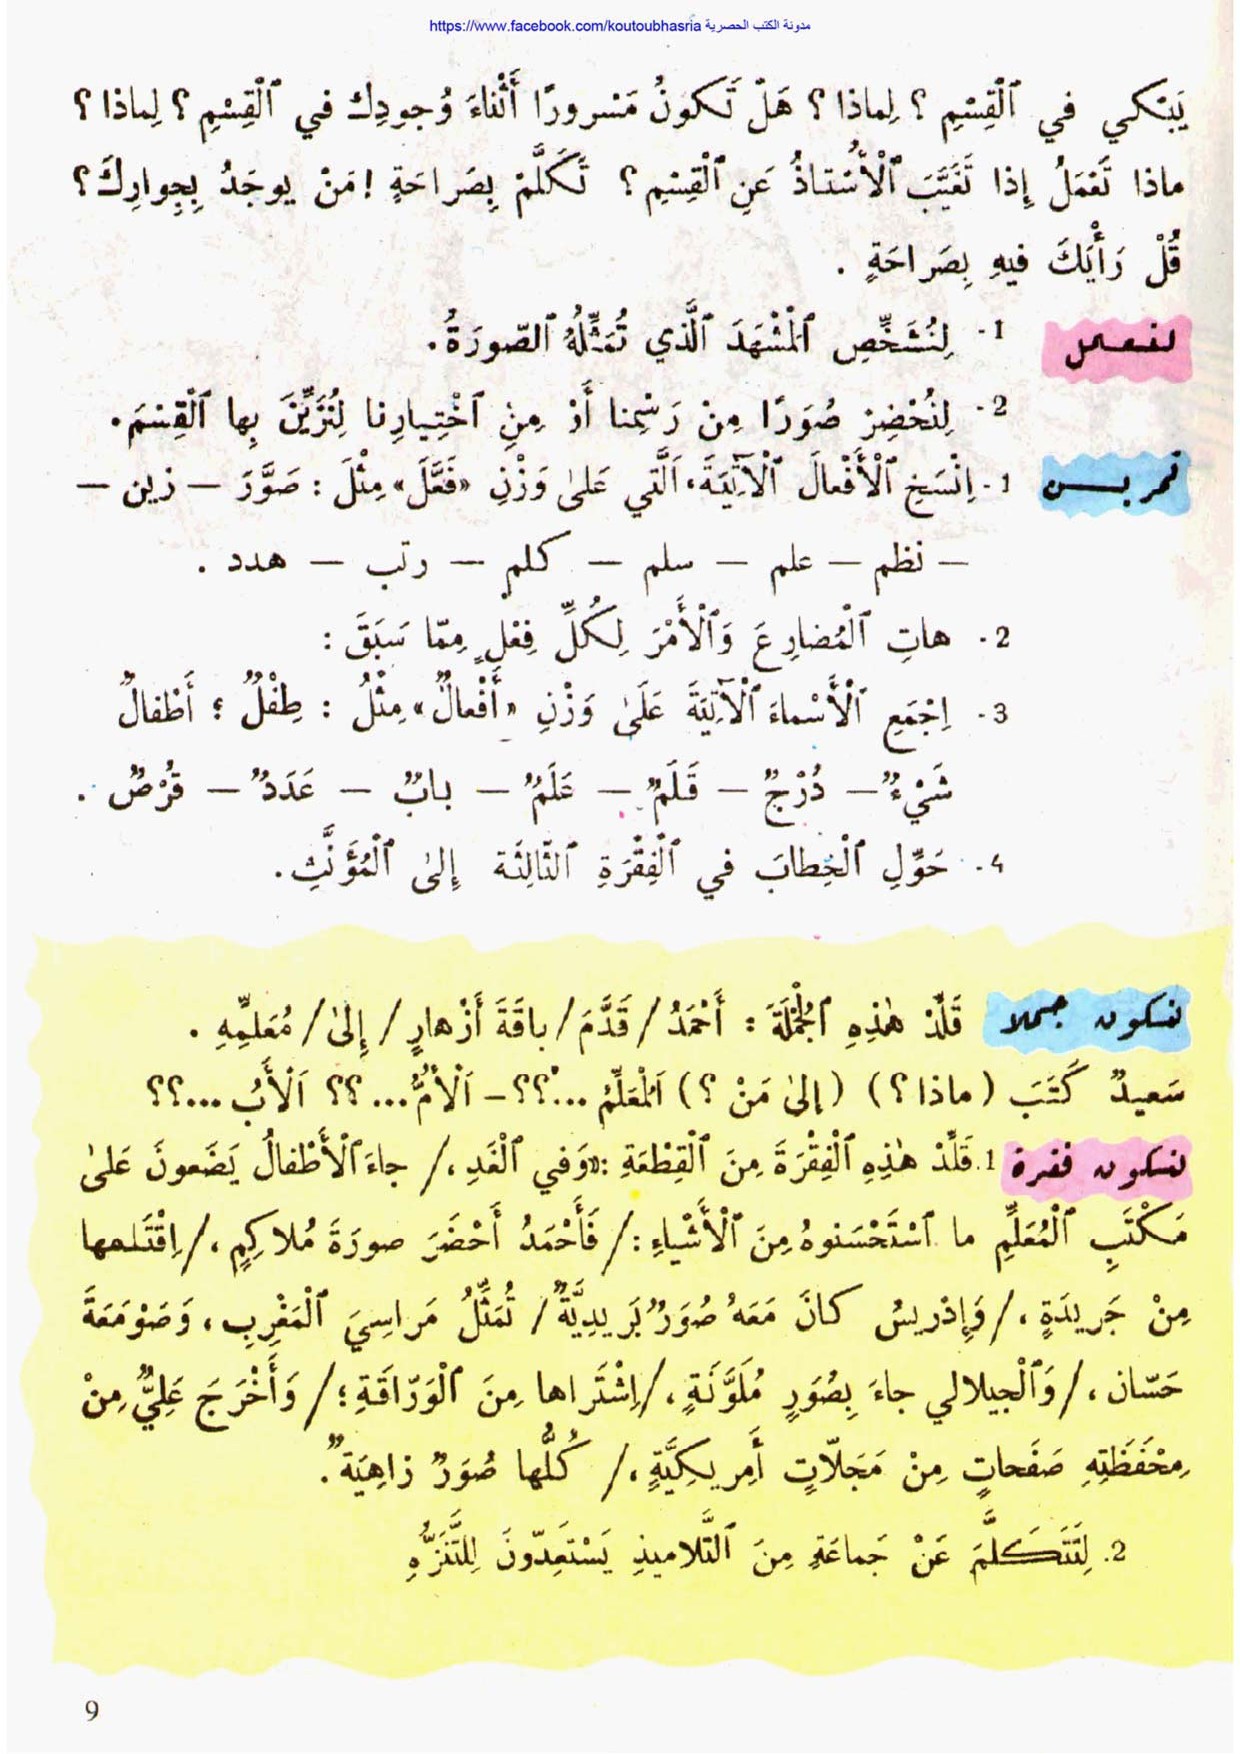 https://www.facebook.com/koutoubhasria مدونة الكتب الحصرية
يَبْتَكي في ٱلْقِسْمِ ؟ لِماذا ؟ هَلْ تَكونُ مَسْرورًا أَثْناءَ وُجودِكَ في ٱلْقِسْمِ ؟ لِماذا ؟
ماذا تَعْمَلُ إِذا تَغَيَّبَ ٱلْأُسْتاذُ عَنِ ٱلْقِسْمِ ؟ تَكَلَّمْ بِصَراحَةٍ ! مَنْ يوجَدُ بِجِوارِكَ ؟
قُلْ رَأْيَكَ فيهِ بِصَراحَةٍ .
لنعمل 1- لِنُشَخِّصِ ٱلْمَشْهَدَ ٱلَّذي تُمَثِّلُهُ ٱلصّورَةُ.
2- لِنُحْضِرْ صُوَرًا مِنْ رَسْمِنا أَوْ مِنِ ٱخْتِيارِنا لِنُزَيِّنَ بِها ٱلْقِسْمَ.
تمريـن 1- اِنْسَخِ ٱلْأَفْعالَ ٱلْآتِيَةَ، اَلَّتي عَلىٰ وَزْنِ «فَعَّلَ» مِثْلَ : صَوَّرَ – زين –
– نظم – علم – سلم – كلم – رتب – هدد .
2- هاتِ ٱلْمُضارِعَ وَٱلْأَمْرَ لِكُلِّ فِعْلٍ مِمّا سَبَقَ :
3- اِجْمَعِ ٱلْأَسْماءَ ٱلْآتِيَةَ عَلَىٰ وَزْنِ «أَفْعالٌ» مِثْلُ : طِفْلٌ ؛ أَطْفالٌ
شَيْءٌ – دُرْجٌ – قَلَمٌ – عَلَمٌ – بابٌ – عَدَدٌ – قُرْصٌ .
4- حَوِّلِ ٱلْخِطابَ في ٱلْفِقْرَةِ ٱلثّالِثَة إِلىٰ ٱلْمُؤَنَّثِ.
نكون جملا قَلِّدْ هٰذِهِ ٱلْجُمْلَةَ : أَحْمَدُ / قَدَّمَ / باقَةَ أَزْهارٍ / إِلىٰ / مُعَلِّمِهِ .
سَعيدٌ كَتَبَ (ماذا ؟) (إِلىٰ مَنْ ؟) اَلْمُعَلِّمُ ...؟؟ – اَلْأُمُّ ...؟؟ اَلْأَبُ ...؟؟
نكون فقرة 1. قَلِّدْ هٰذِهِ ٱلْفِقْرَةَ مِنَ ٱلْقِطْعَةِ : «وَفي ٱلْغَدِ ،/ جاءَ ٱلْأَطْفالُ يَضَعونَ عَلىٰ
مَكْتَبِ ٱلْمُعَلِّمِ ما ٱسْتَحْسَنوهُ مِنَ ٱلْأَشْياءِ :/ فَأَحْمَدُ أَحْضَرَ صورَةَ مُلاكِمٍ ،/ اِقْتَلَعها
مِنْ جَريدَةٍ ،/ وَإِدْريسُ كانَ مَعَهُ صُوَرٌ بَريدِيَّةٌ / تُمَثِّلُ مَراسِيَ ٱلْمَغْرِبِ ، وَصَوْمَعَةَ
حَسّان ،/ وَٱلْجيلالي جاءَ بِصُوَرٍ مُلَوَّنَةٍ ،/ اِشْتَراها مِنَ ٱلْوَرّاقَةِ ؛/ وَأَخْرَجَ عَلِيٌّ مِنْ
مِحْفَظَتِهِ صَفَحاتٍ مِنْ مَجَلّاتٍ أَمِريكِيَّةٍ ،/ كُلُّها صُوَرٌ زاهِيَةٌ.
2. لِنَتَكَلَّمَ عَنْ جَماعَةٍ مِنَ ٱلتَّلاميذِ يَسْتَعِدّونَ لِلتَّنَزُّهِ
9